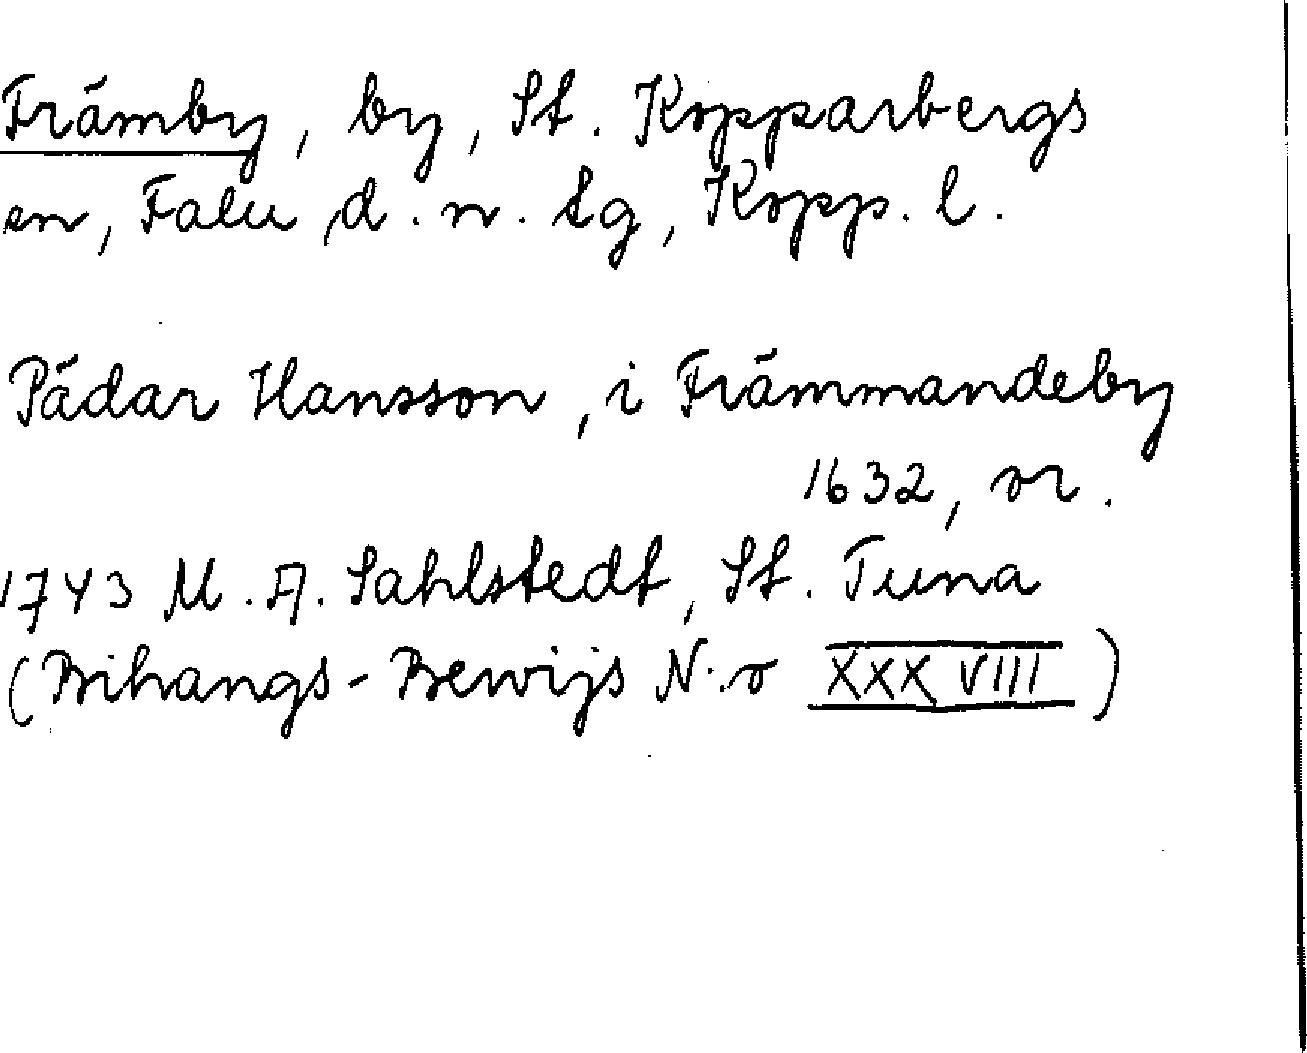 Främby, by, St. Kopparbergs
sn, Falu d. n. tg, Kopp. l.
Pädar Hansson, i Främmandeby
1632, or.
1743 M. A. Sahlstedt, St. Tuna
(Bihangs-Bewijs N:o XXXVIII)